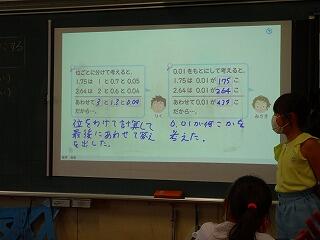 位ごとに分けて考えると,
1.75は 1 と 0.7 と 0.05
2.64は 2 と 0.6 と 0.04
あわせて 3 と 1.3 と 0.09
だから…。
りく
位をわけて計算して
最後にあわせて答え
を出した。
0.01をもとにして考えると,
1.75は 0.01が 175 こ
2.64は 0.01が 264 こ
あわせて 0.01が 439 こ
だから…。
みさき
0.01が何こかを
考えた。